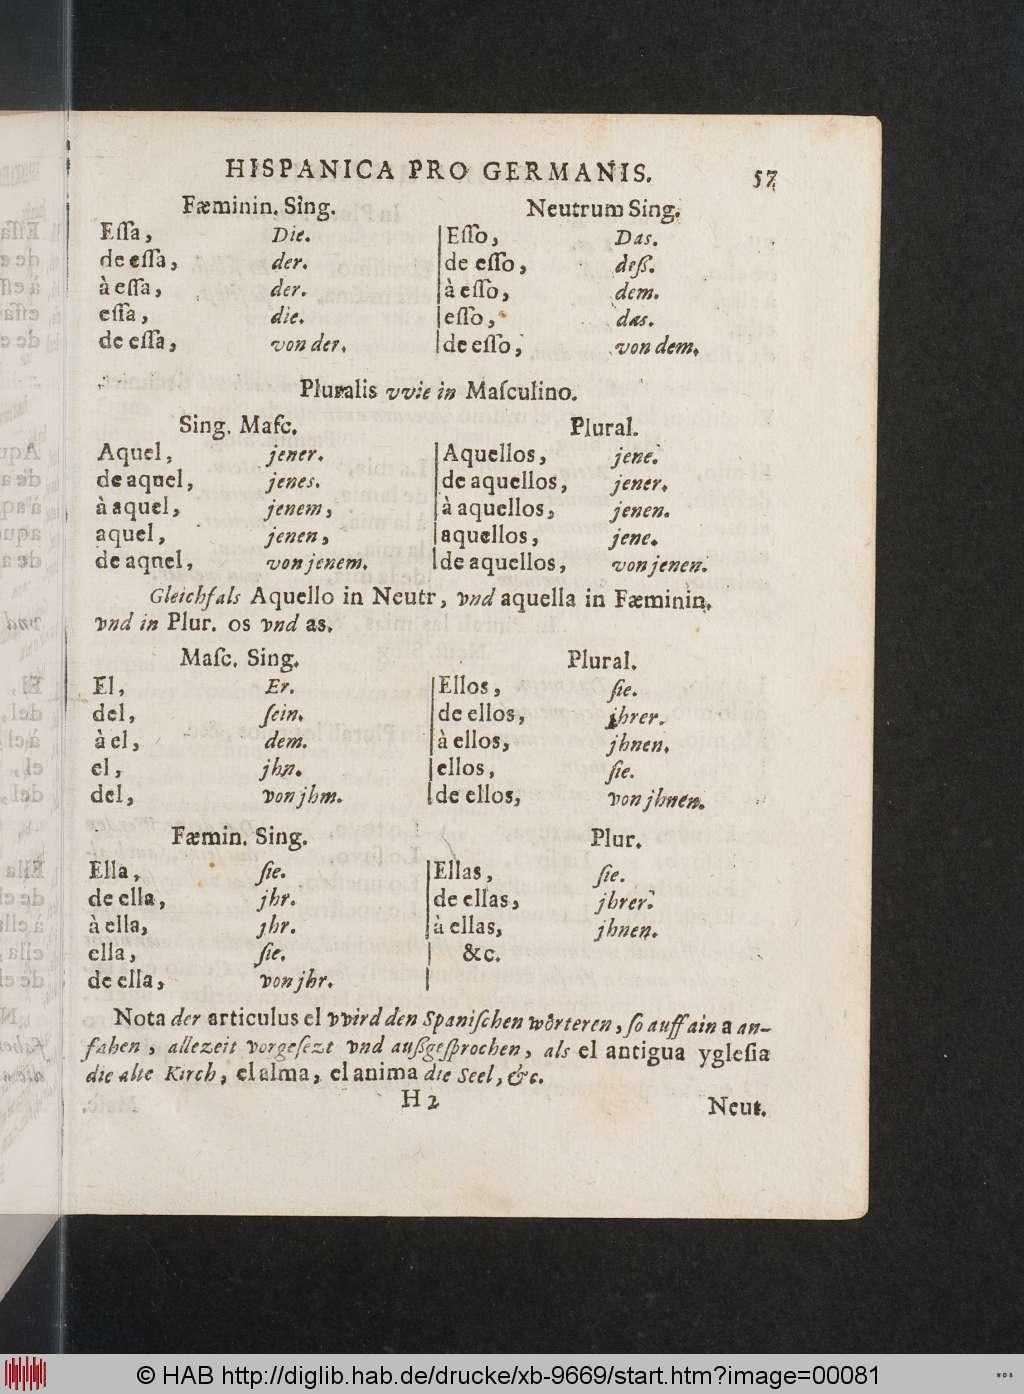 HISPANICA PRO GERMANIS. 57
Fæminin. Sing. Neutrum Sing.
Eſſa, Die. Eſſo, Das.
de eſſa, der. de eſſo, deß.
à eſſa, der. à eſſo, dem.
eſſa, die. eſſo, das.
de eſſa, von der. de eſſo, von dem.
Pluralis vvie in Maſculino.
Sing. Maſc. Plural.
Aquel, jener. Aquellos, jene.
de aquel, jenes. de aquellos, jener.
à aquel, jenem, à aquellos, jenen.
aquel, jenen, aquellos, jene.
de aqnel, von jenem. de aquellos, von jenen.
Gleichfals Aquello in Neutr, vnd aquella in Fæminin.
vnd in Plur. os vnd as.
Maſc. Sing. Plural.
El, Er. Ellos, ſie.
del, ſein. de ellos, jhrer.
à el, dem. à ellos, jhnen.
el, jhn. ellos, ſie.
del, von jhm. de ellos, von jhnen.
Fæmin. Sing. Plur.
Ella, ſie. Ellas, ſie.
de ella, jhr. de ellas, jhrer.
à ella, jhr. à ellas, jhnen.
ella, ſie. &c.
de ella, von jhr.
Nota der articulus el vvird den Spaniſchen wörteren, ſo auff ain a an-
fahen, allezeit vorgeſezt vnd außgeſprochen, als el antigua ygleſia
die alte Kirch, el alma, el anima die Seel, &c.
H 2 Neut.
© HAB http://diglib.hab.de/drucke/xb-9669/start.htm?image=00081